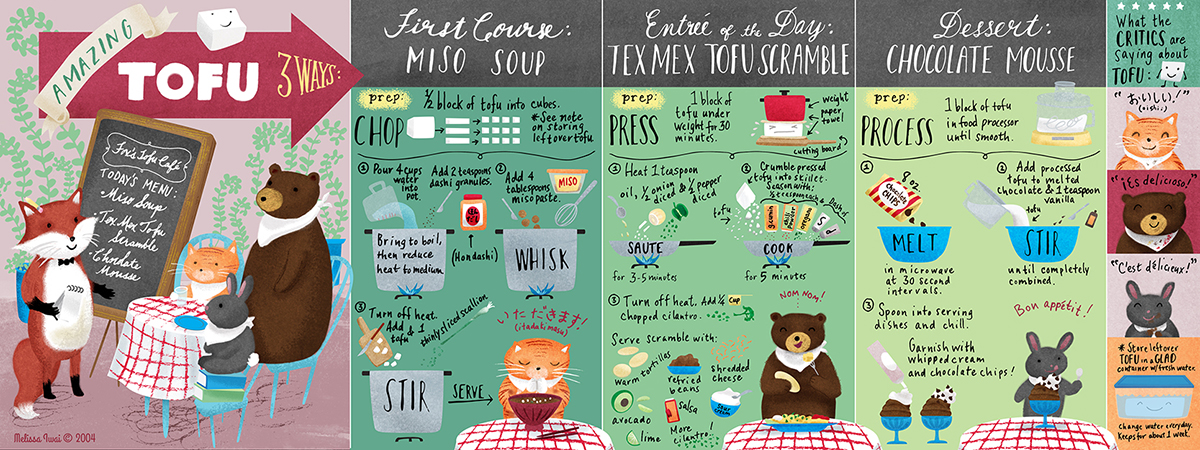 AMAZING
TOFU
3 WAYS:
Fox's Tofu Café
TODAY'S MENU:
• Miso Soup
• Tex Mex Tofu
Scramble
• Choclate
Mousse
Melissa Iwai © 2004
First Course:
MISO SOUP
prep:
½ block of tofu into cubes.
CHOP
*See note
on storing
leftover tofu
① Pour 4 cups
water
into
pot.
Add 2 teaspoons
dashi granules.
② Add 4
tablespoons
miso paste.
MISO
Bring to boil,
then reduce
heat to medium
(Hondashi)
WHISK
③ Turn off heat.
Add
tofu
& 1
thinly sliced scallion
STIR
SERVE
いただきます!
(itadakimasu)
Entrée of the Day:
TEX MEX TOFU SCRAMBLE
prep:
PRESS
1 block of
tofu under
weight for 30
minutes.
weight
paper
towel
cutting board
① Heat 1 teaspoon
oil, ½ onion & ½ pepper
diced
diced
SAUTE
for 3-5 minutes
② Crumble pressed
tofu into skillet.
Season with:
tofu
COOK
for 5 minutes
③ Turn off heat. Add ¼ cup
chopped cilantro.
NOM NOM!
Serve scramble with:
warm tortillas
refried
beans
shredded
cheese
avocado
salsa
sour
cream
lime
More
cilantro!
Dessert:
CHOCOLATE MOUSSE
prep:
PROCESS
1 block of tofu
in food processor
until smooth.
①
8 oz
chocolate
CHIPS
MELT
in microwave
at 30 second
intervals.
② Add processed
tofu to melted
chocolate & 1 teaspoon
vanilla
tofu
STIR
until completely
combined.
③ Spoon into serving
dishes and chill.
Bon appétit!
Garnish with
whipped cream
and chocolate chips!
What the
CRITICS are
saying about
TOFU:
"おいしい!"
(oishii)
"¡Es delicioso!"
"C'est délicieux!"
* Store leftover
TOFU in a GLAD
container w/fresh water.
Change water everyday.
Keeps for about 1 week.